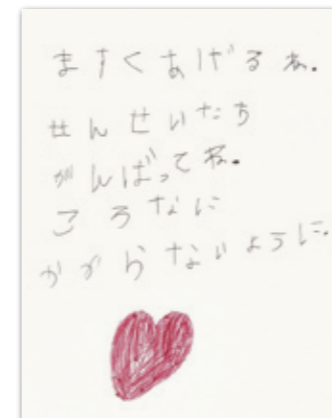 ますくあげるね。
せんせいたち
がんばってね。
ころなに
かからないように。